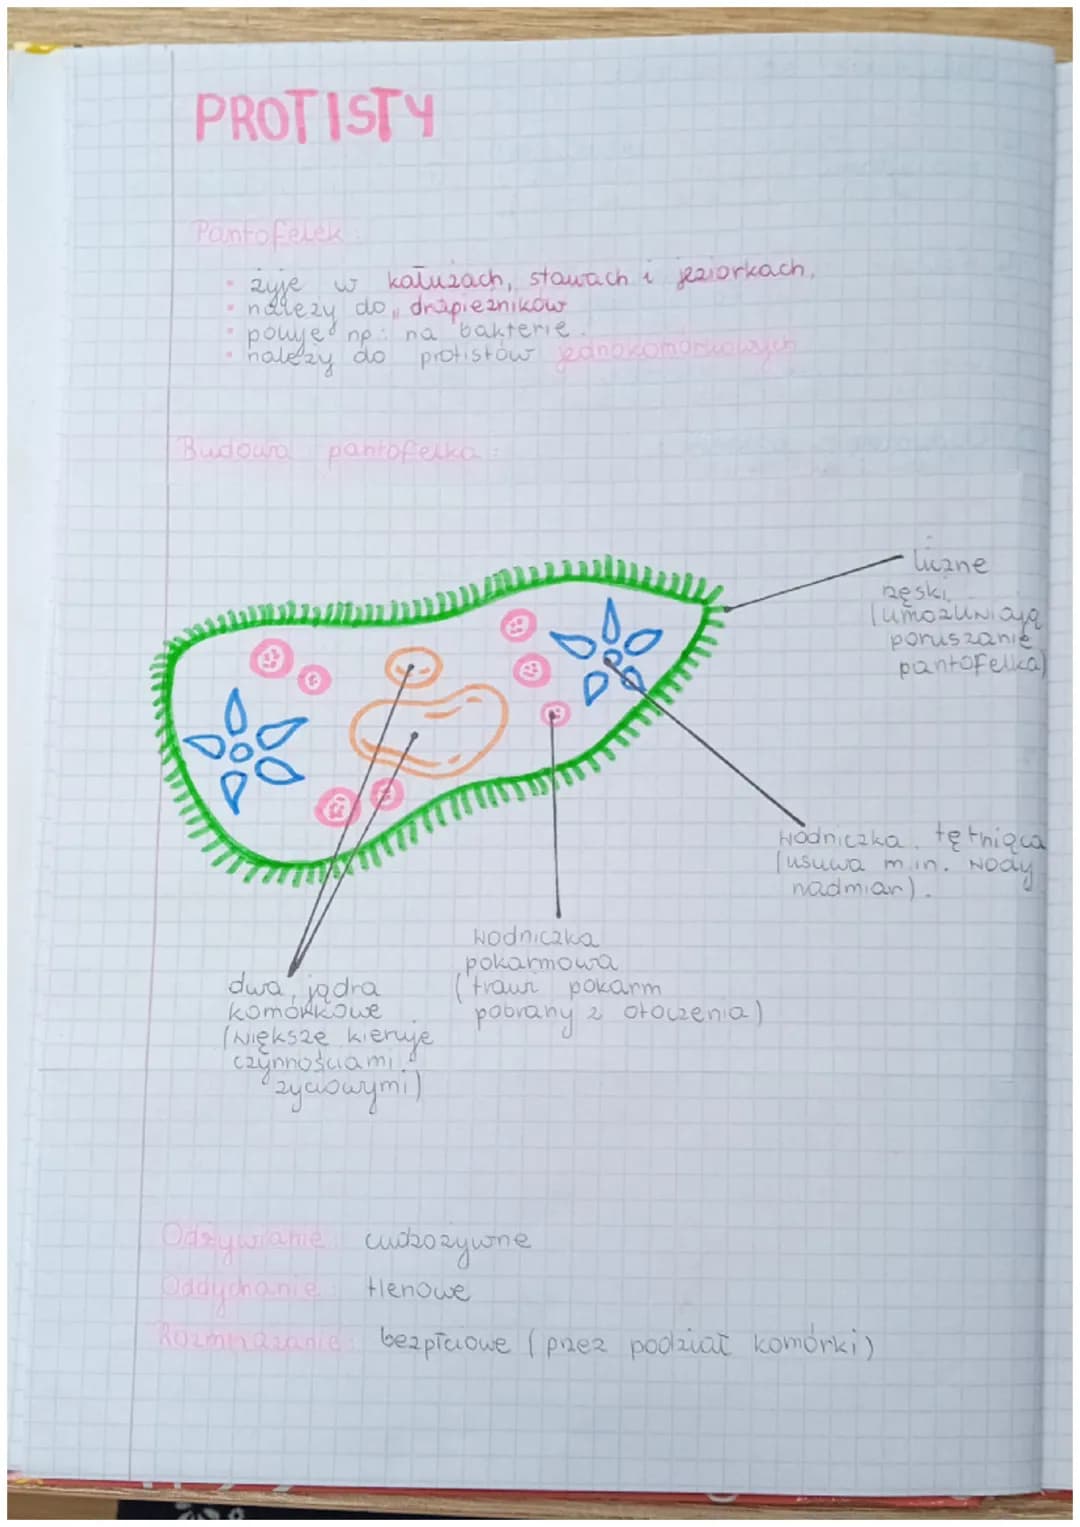 PROTISTY
Pantofelek:
• żyje w kałużach, stawach i jeziorkach.
• należy do drapieżników
• poluje np.: na bakterie.
• należy do protistów jednokomórkowych
Budowa pantofelka:
liczne
rzęski
(umożliwiają
poruszanie
pantofelka)
wodniczka tętniąca
(usuwa m.in. wody
nadmiar).
wodniczka
pokarmowa
(trawi pokarm
pobrany z otoczenia)
dwa jądra
komórkowe
(większe kieruje
czynnościami
życiowymi)
Odżywianie: cudzożywne
Oddychanie: tlenowe
Rozmnażanie: bezpłciowe (przez podział komórki)